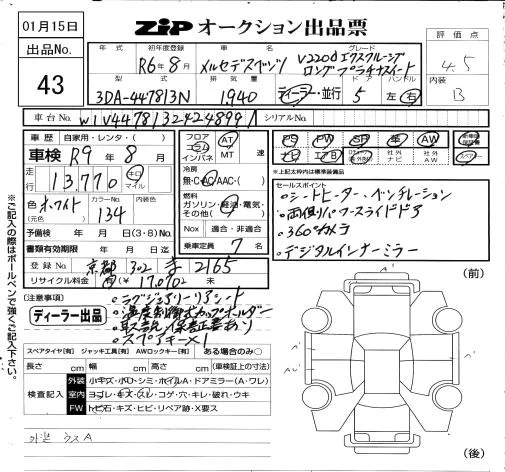 01月15日
ZIP オークション出品票
出品No.
43
年式 初年度登録 車名 グレード
R6年8月 メルセデスベンツ V220dエクスクルーシブ
ロングプラチナスイート
型式 排気量 ドア ハンドル
3DA-447813N 1,940 ディーラー・並行 5 左 右
評価点
4.5
内装
B
車台No. W1V44781324248991 シリアルNo.
車歴 自家用・レンタ( )
車検 R9年8月
走行 13,770 キロ マイル
色 ホワイト (元色) カラーNo. 134 内装色
予備検 年 月 日(3・8)No.
書類有効期限 年 月 日迄
登録No. 京都 302 す 2165
リサイクル料金 有(¥17,070) 未
フロア コラム インパネ AT MT 速
冷房 無・C・AC AAC・( )
燃料 ガソリン・軽油・電気・その他( )
Nox 適合・非適合
乗車定員 7 名
PS PW SR 革 AW
ナビ 社外AV 社外AW
新車時保証書
スペアキー
※上記太枠内は標準装備品
セールスポイント
・シートヒーター、ベンチレーション
・両側パワースライドドア
・360°カメラ
・デジタルインナーミラー
・ラグジュアリーリアシート
・温度制御式カップホルダー
・取説、保証書あり
・スペアキー×1
〈注意事項〉
ディーラー出品
スペアタイヤ[有] ジャッキ工具[有] AWロックキー[有] ある場合のみ○
長さ cm 幅 cm 高さ cm (車検証上の寸法)
検査記入
外装 小キズ・ボロ・シミ・ホイルA・ドアミラー(A・ワレ)
室内 ヨゴレ・キズ・スレ・コゲ・穴・キレ・破れ・ウキ
FW トビ石・キズ・ヒビ・リペア跡・X要ス
外装 ウスA
(前)
(後)
※ご記入の際はボールペンで強くご記入下さい。